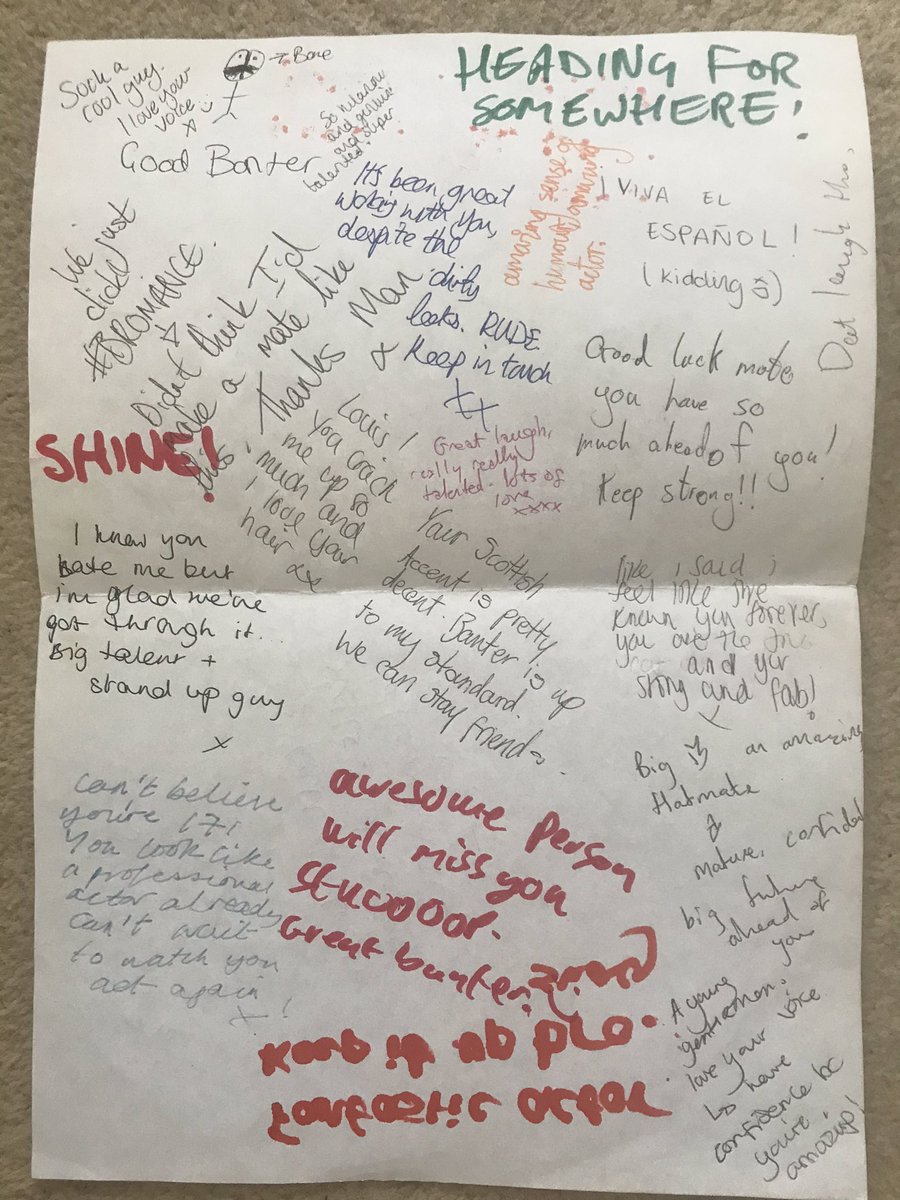 Such a
cool guy.
I love your
voice
x
→ Bone
Good Banter
So hilarious
and genuine
and super
talented!
HEADING FOR
SOMEWHERE!
It's been great
working with you,
despite the
dirty
looks. RUDE.
Keep in touch
xx
amazing sense of
humour, amazing
actor.
¡VIVA EL
ESPAÑOL!
(kidding
Dat laugh tho,
We just
click!
#BROMANCE.
Didn't think I'd
make a mate like
this!
Thanks Man
x
SHINE!
Louis!
You crack
me up so
much and
I love your
hair xx
Great laugh,
really really
talented. lots of
love xxxx
Good luck mate,
you have so
much ahead of you!
Keep strong!!
I knew you
hate me but
i'm glad we've
got through it..
Big talent +
stand up guy
x
Your Scottish
Accent is pretty
decent. Banter is up
to my standard.
We can stay friends.
like i said i
feel like i've
known you forever,
you are the
and your
strong and fab!
x
Big
an amazing
flatmate
&
mature, confident
big future
ahead of
you
Can't believe
you're 17!
You look like
a professional
actor already
can't wait
to watch you
act again!
x
awesome person
will miss you
Stuooor.
Great bunter!
Fantastic actor
Keep it up pro.
A young
gentleman.
love your voice.
↳ have
confidence bc
you're
amazing!